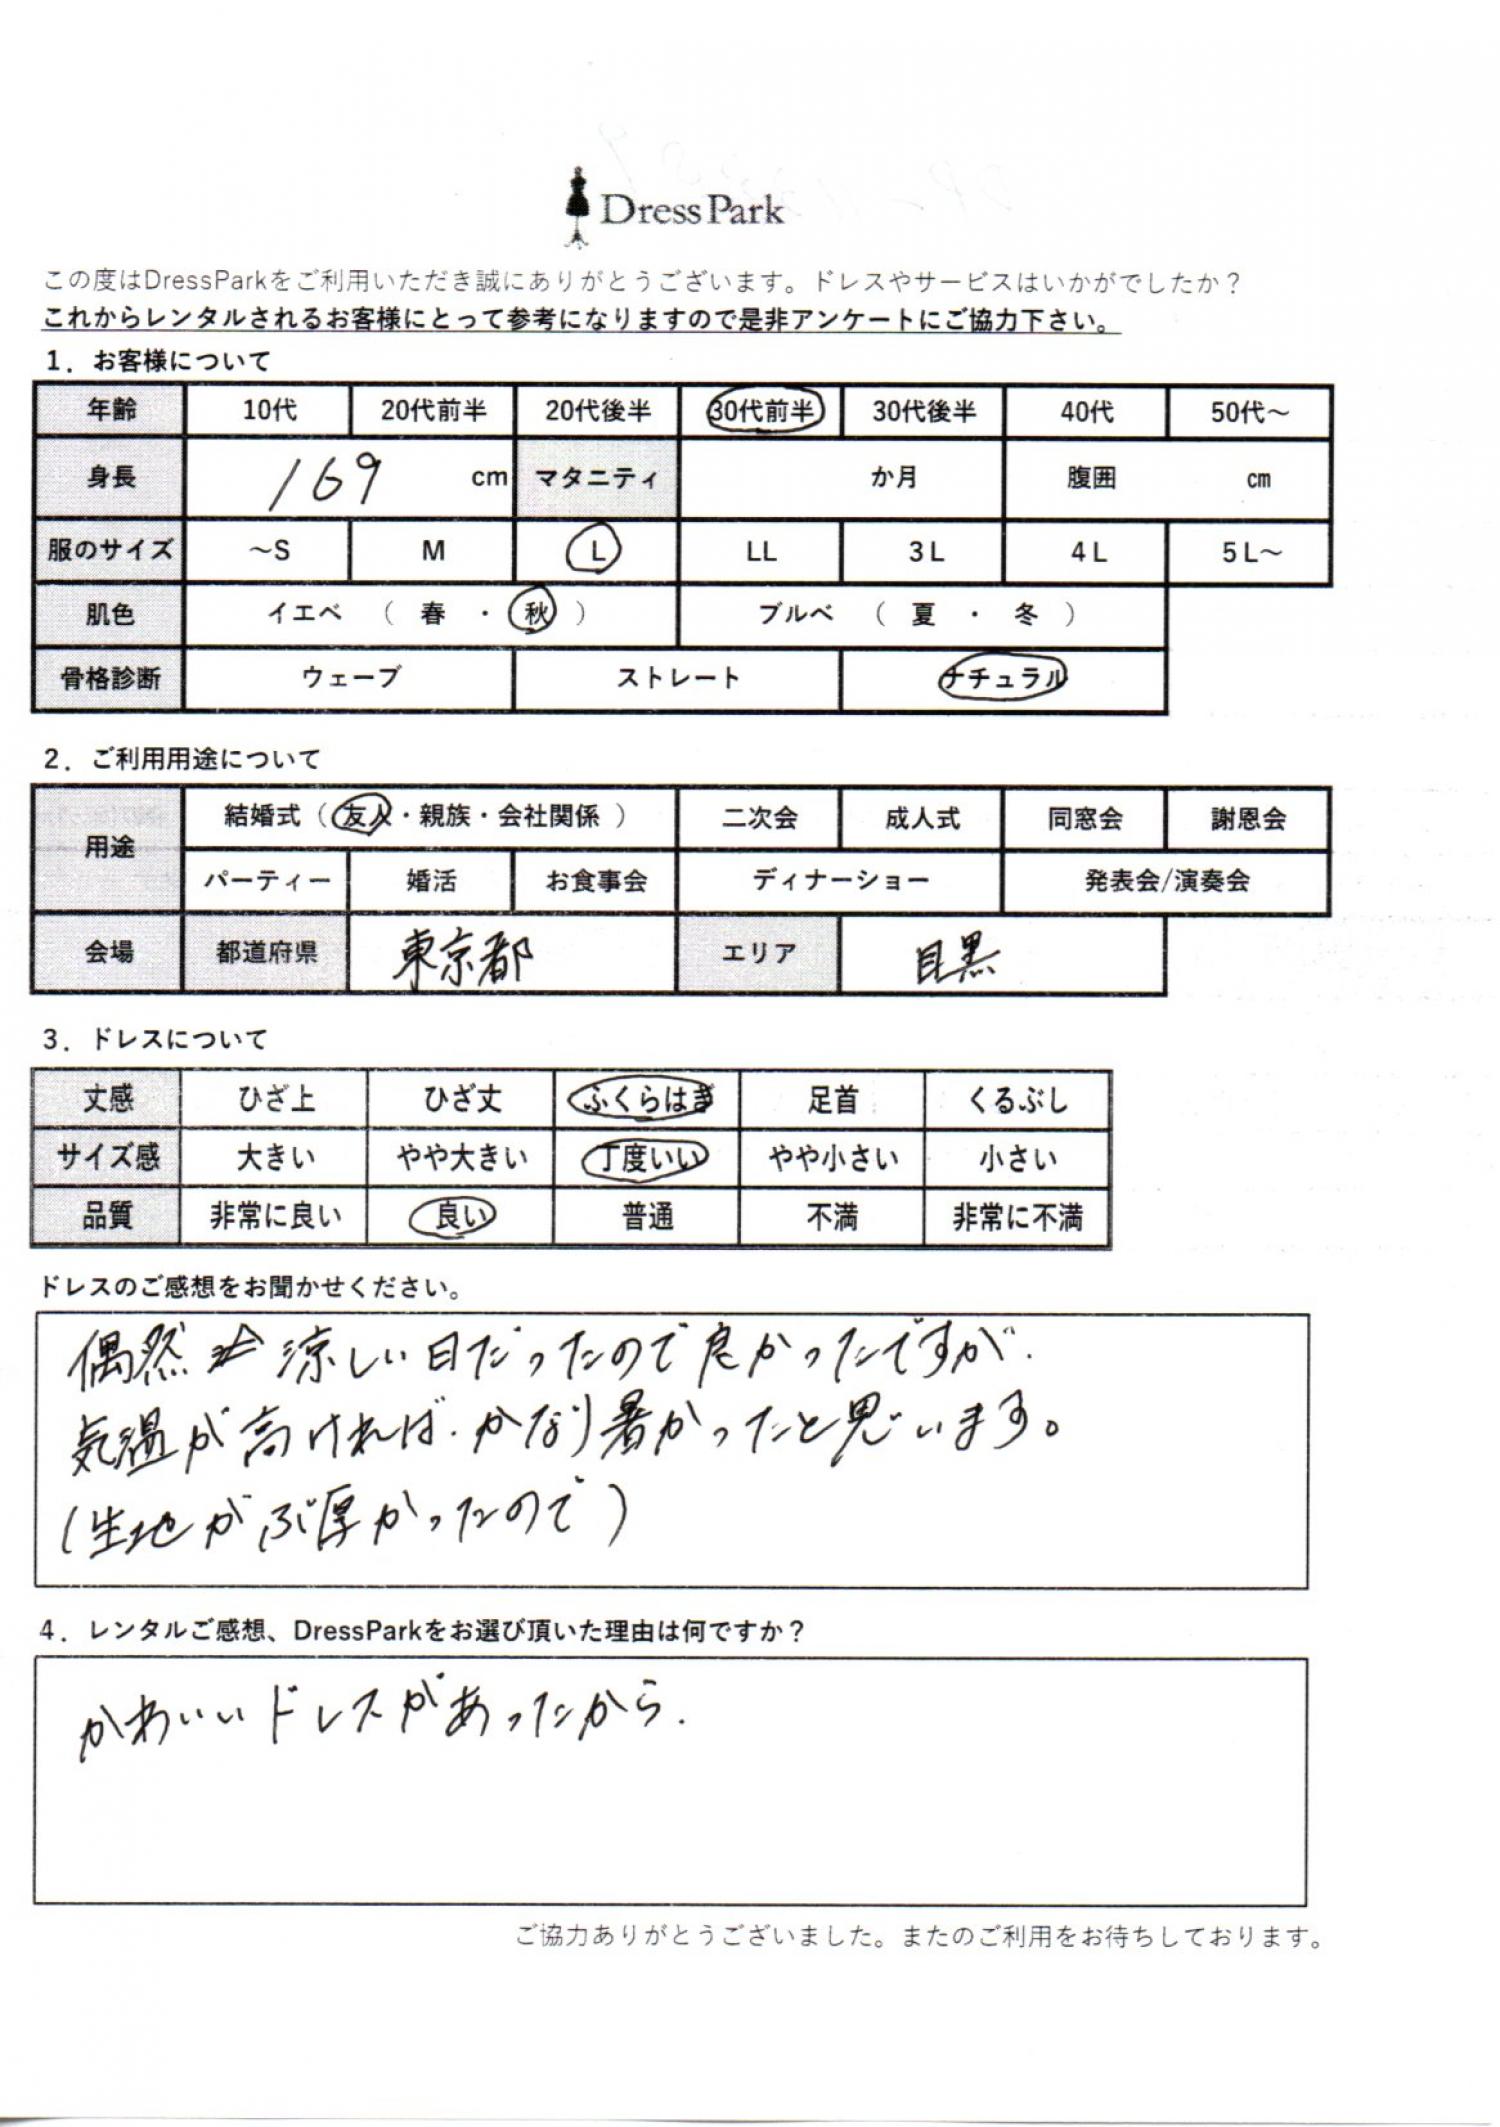 DressPark
この度はDressParkをご利用いただき誠にありがとうございます。ドレスやサービスはいかがでしたか？
これからレンタルされるお客様にとって参考になりますので是非アンケートにご協力下さい。
1．お客様について
年齢 10代 20代前半 20代後半 30代前半 30代後半 40代 50代～
身長 169 cm マタニティ か月 腹囲 cm
服のサイズ ～S M L LL 3L 4L 5L～
肌色 イエベ （ 春 ・ 秋 ） ブルベ （ 夏 ・ 冬 ）
骨格診断 ウェーブ ストレート ナチュラル
2．ご利用用途について
用途 結婚式（ 友人・親族・会社関係 ） 二次会 成人式 同窓会 謝恩会
パーティー 婚活 お食事会 ディナーショー 発表会/演奏会
会場 都道府県 東京都 エリア 目黒
3．ドレスについて
丈感 ひざ上 ひざ丈 ふくらはぎ 足首 くるぶし
サイズ感 大きい やや大きい 丁度いい やや小さい 小さい
品質 非常に良い 良い 普通 不満 非常に不満
ドレスのご感想をお聞かせください。
偶然 涼しい日だったので良かったですが.
気温が高ければ.かなり暑かったと思います。
(生地がぶ厚かったので)
4．レンタルご感想、DressParkをお選び頂いた理由は何ですか？
かわいいドレスがあったから.
ご協力ありがとうございました。またのご利用をお待ちしております。